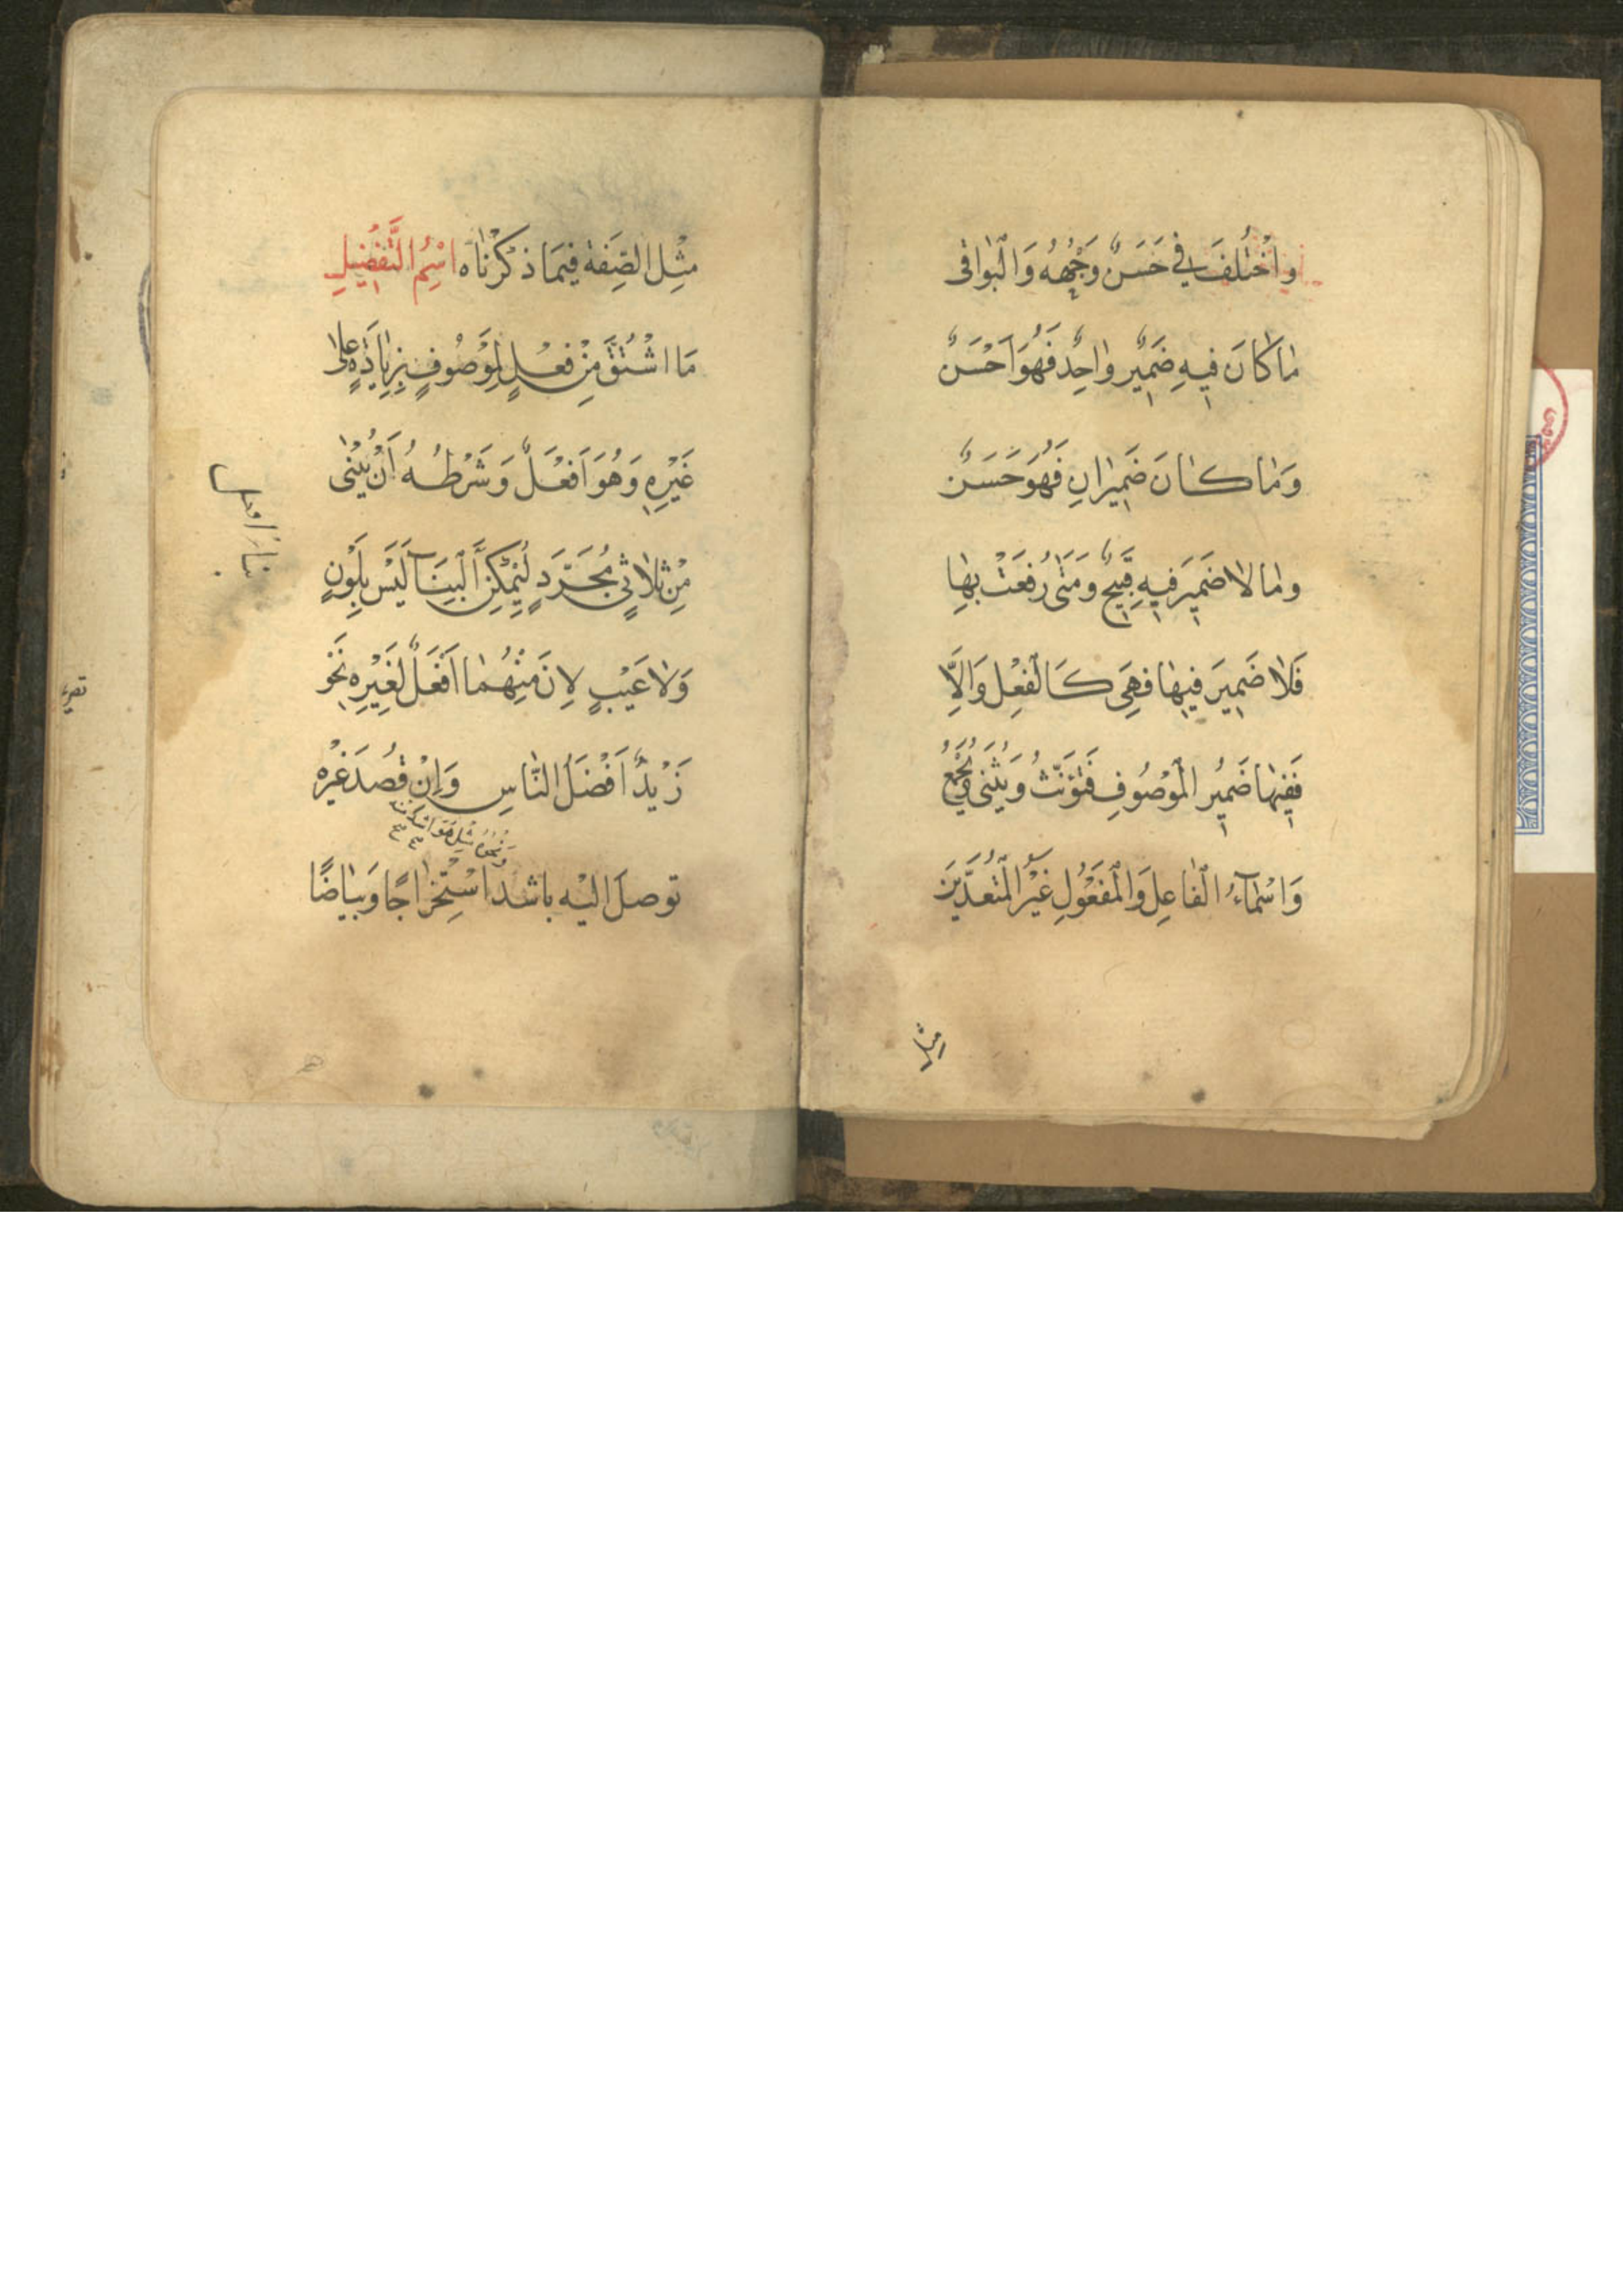 وَاخْتُلِفَ فِي حَسَنٌ وَجْهُهُ وَالْبَوَاقِي
مَا كَانَ فِيهِ ضَمِيرٌ وَاحِدٌ فَهُوَ اَحْسَنُ
وَمَا كَانَ ضَمِيرَانِ فَهُوَ حَسَنٌ
وَمَا لَا ضَمِيرَ فِيهِ قَبِيحٌ وَمَتَى رُفِعَتْ بِهَا
فَلَا ضَمِيرَ فِيهَا فَهِيَ كَالْفِعْلِ وَاِلَّا
فَفِيهَا ضَمِيرُ الْمَوْصُوفِ فَتُؤَنَّثُ وَيُثَنَّى وَيُجْمَعُ
وَاَسْمَآءُ الْفَاعِلِ وَالْمَفْعُولِ غَيْرُ الْمُتَعَدِّيَيْنِ
مثل
مِثْلُ الصِّفَةِ فِيمَا ذَكَرْنَاهُ اِسْمُ التَّفْضِيلِ
مَا اشْتُقَّ مِنْ فِعْلٍ لِمَوْصُوفٍ بِزِيَادَةٍ عَلَى
غَيْرِهِ وَهُوَ اَفْعَلُ وَشَرْطُهُ اَنْ يُبْنَى
مِنْ ثُلَاثِيٍّ مُجَرَّدٍ لِيُمْكِنَ الْبِنَآءُ لَيْسَ بِلَوْنٍ
وَلَا عَيْبٍ لِاَنَّ مِنْهُمَا اَفْعَلُ لِغَيْرِهِ نَحْوُ
زَيْدٌ اَفْضَلُ النَّاسِ وَاِنْ قُصِدَ غَيْرُهُ
وَنَحْوُ مِثْلُ هُوَ اَشَدُّ مِنْهُ
تُوُصِّلَ اِلَيْهِ بِاَشَدَّ اسْتِخْرَاجًا وَبَيَاضًا